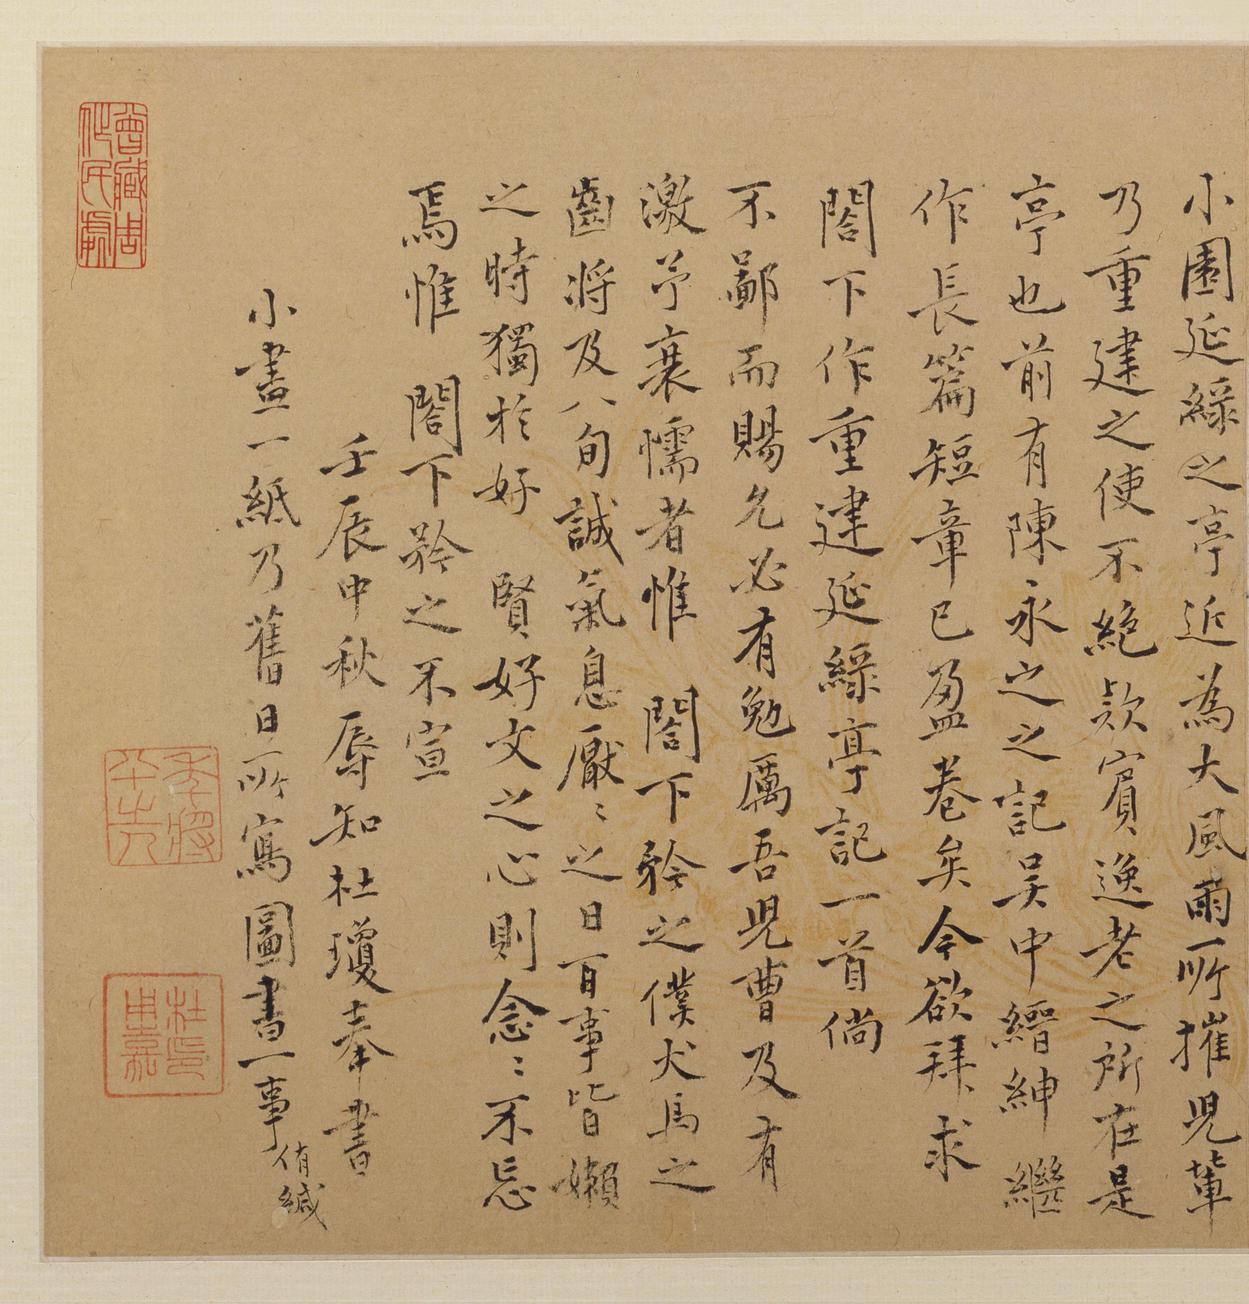 小園延綠之亭近為大風雨所摧児輩
乃重建之使不絶款賓逸老之所在是
亭也前有陳永之之記吴中縉紳繼
作長篇短章已盈卷矣今欲拜求
閤下作重建延綠亭記一首倘
不鄙而賜允必有勉厲吾児曹及有
激予衰懦者惟閤下矜之僕犬馬之
齒将及八旬誠氣息厭〻之日百事皆嬾
之時獨於好賢好文之心則念〻不忘
焉惟閤下矜之不宣
壬辰中秋辱知杜瓊奉書
小畫一紙乃舊日所寫圖書一事侑緘
曾藏周作民處